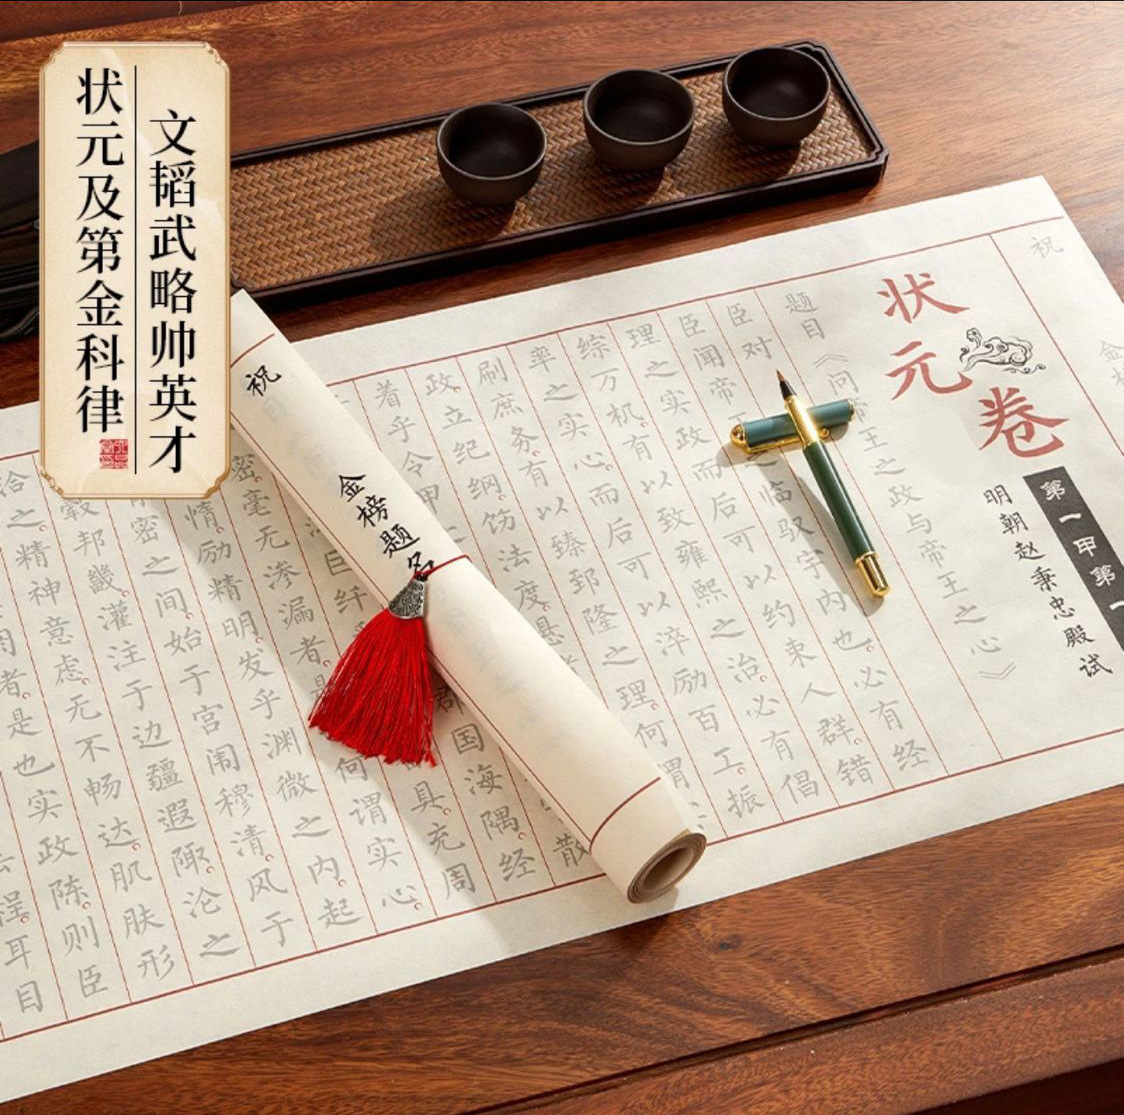 文韬武略帅英才
状元及第金科律
祝
金榜
状元卷
第一甲第一
明朝赵秉忠殿试
题目《问帝王之政与帝王之心》
臣对
臣闻帝王之临驭宇内也必有经
理之实政而后可以约束人群错
综万机有以致雍熙之治必有倡
率之实心而后可以淬励百工振
刷庶务有以臻郅隆之理何谓
政立纪纲饬法度悬
散
着乎令甲
群国海隅经
巨纤
具充周
密毫无渗漏者是何谓实心
惰励精明发乎渊微之内起
密之间始于宫闱穆清风于
毂邦畿灌注于边疆遐陬沦之
洽之精神意虑无不畅达肌肤形
者是也实政陈则臣
程耳目
祝
金榜题名